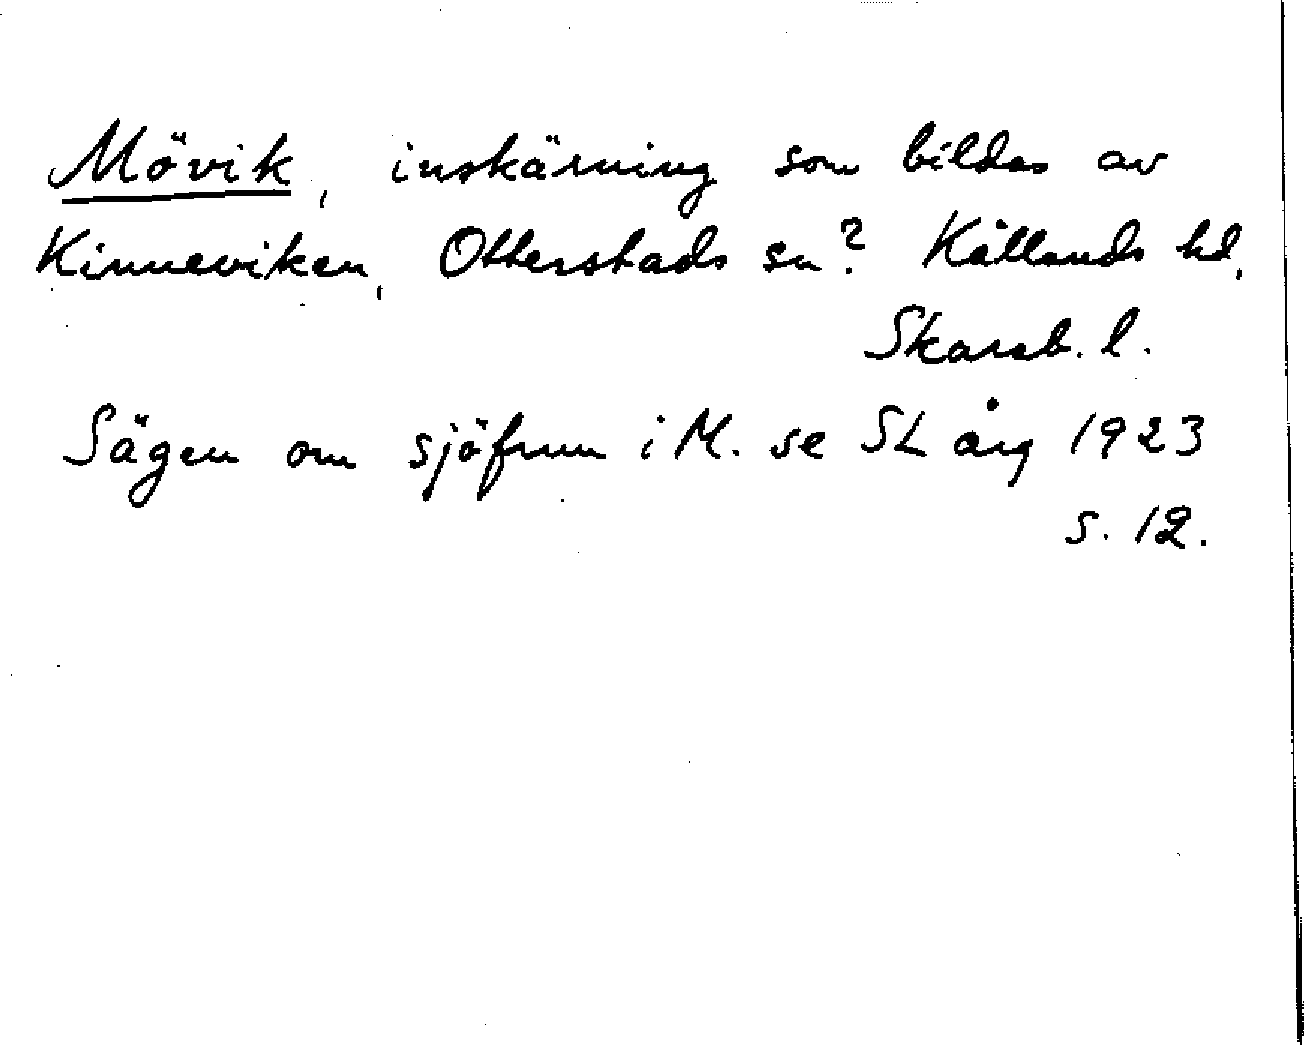 Mövik, inskärning som bildas av
Kinneviken, Otterstads sn? Kållands hd,
Skarab. l.
Sägen om sjöfrun i M. se SL årg 1923
s. 12.